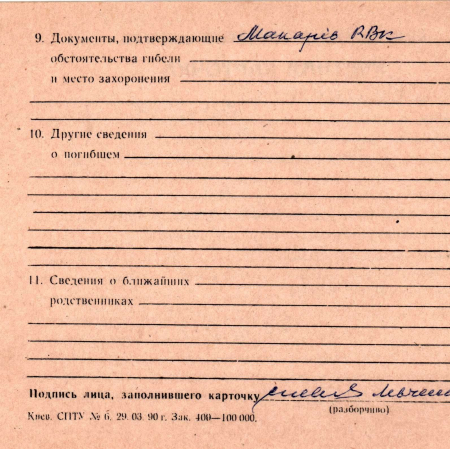 9. Документы, подтверждающие Макарів РВК
обстоятельства гибели
и место захоронения
10. Другие сведения
о погибшем
11. Сведения о ближайших
родственниках
Подпись лица, заполнившего карточку
(разборчиво)
Киев. СПТУ № 6. 29. 03. 90 г. Зак. 400—100 000.